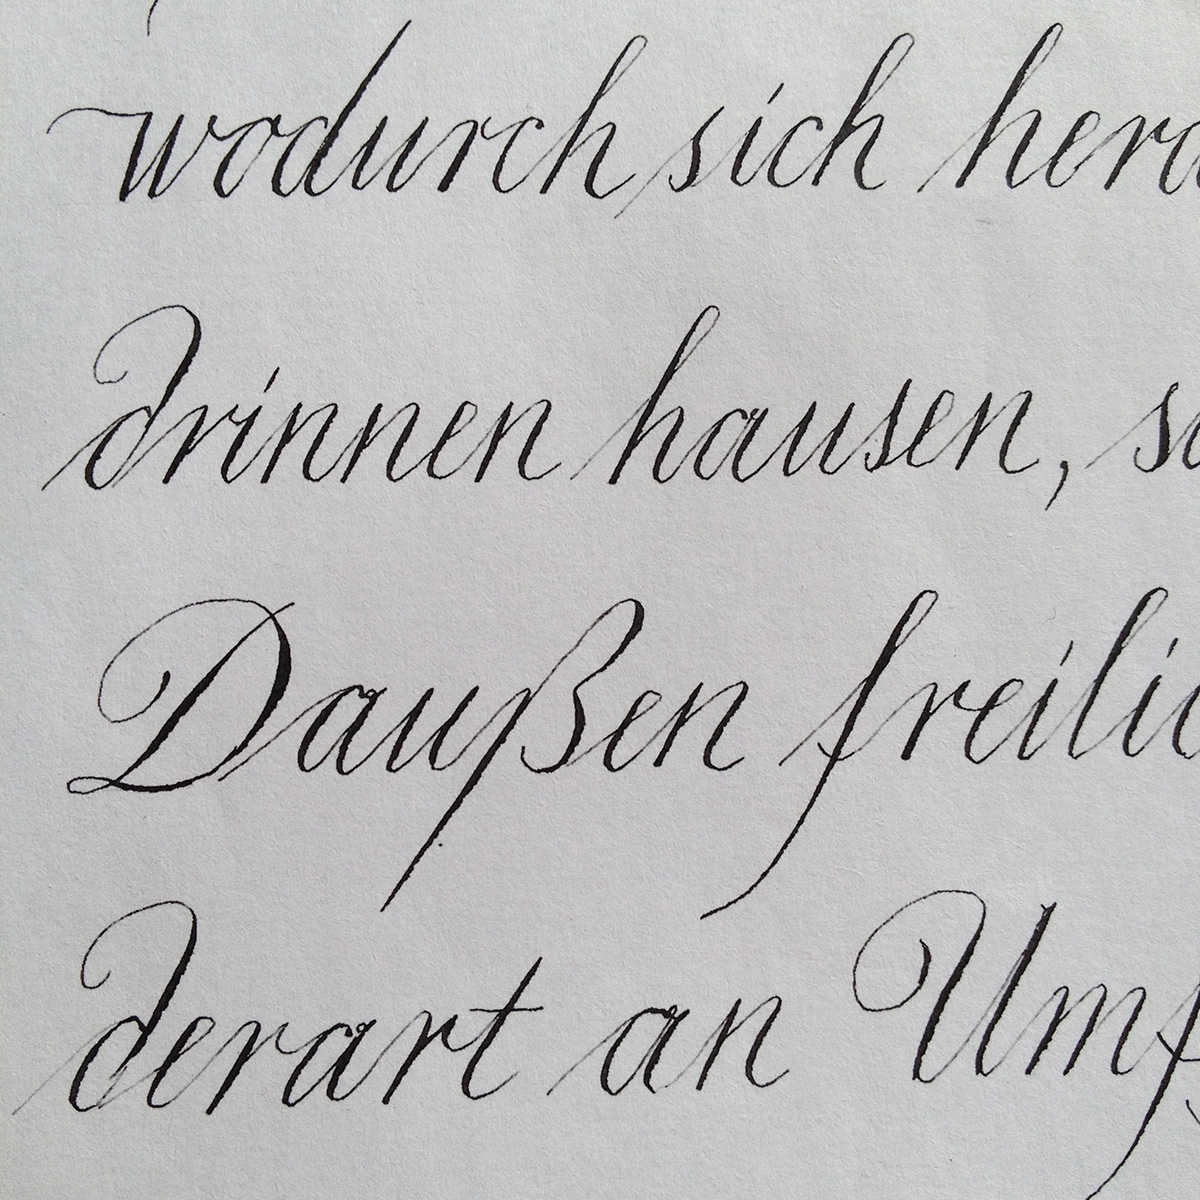 wodurch sich hera
drinnen hausen, so
Daußen freilic
derart an Umf